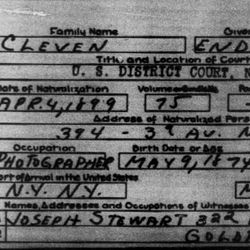 Family Name Give
CLEVEN END
Title and Location of Court
U. S. DISTRICT COURT,
Date of Naturalization Volume or Bundle No. Pa
APR. 4, 1899 75
Address of Naturalized Perso
394 - 3ᴿ AV.
Occupation Birth Date or Age
PHOTOGRAPHER MAY 9, 187
Port of Arrival in the United States
N.Y. N.Y.
Names, Addresses and Occupations of Witnesses
JOSEPH STEWART 322
GOLD